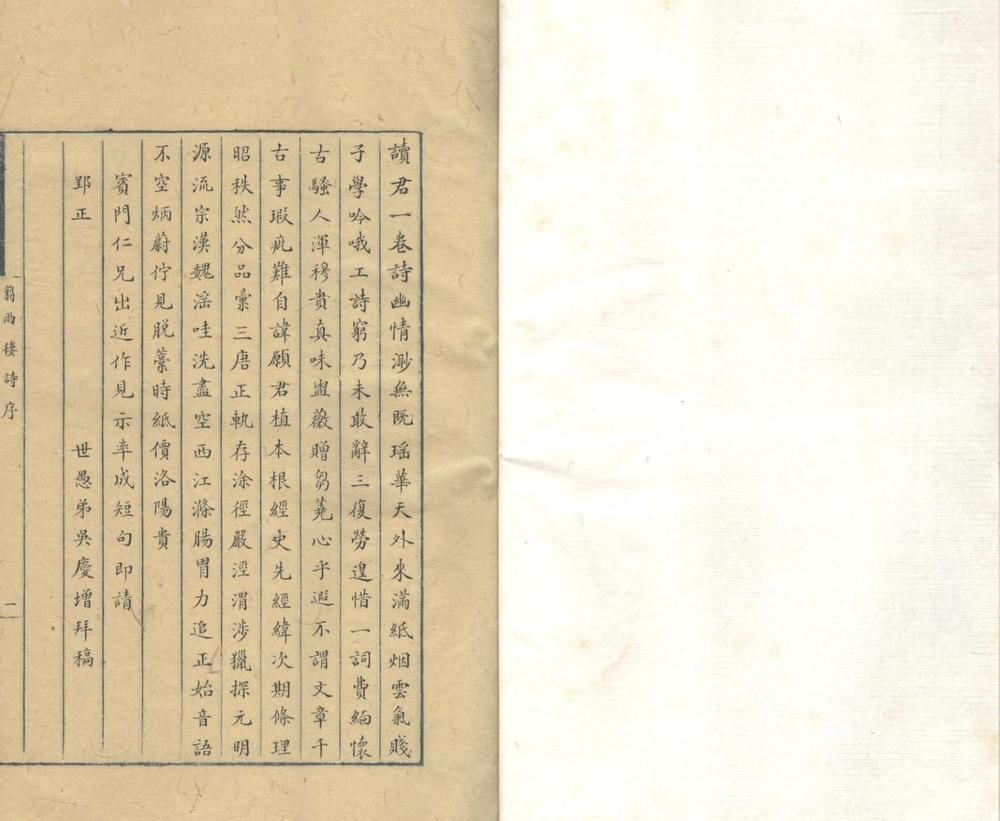 讀君一卷詩幽情渺無既瑶華天外來滿紙烟雲氣賤
子學吟哦工詩窮乃未敢辭三復勞遑惜一詞費緬懷
古騷人渾穆貴真味盥薇贈芻蕘心乎遐不謂文章千
古事瑕疵難自諱願君植本根經史先經緯次期條理
昭秩然分品彙三唐正軌存涂徑嚴涇渭涉獵探元明
源流宗漢魏淫哇洗盡空西江滌腸胃力追正始音語
不空炳蔚佇見脱藁時紙價洛陽貴
賓門仁兄出近作見示率成短句即請
郢正
世愚弟吳慶增拜稿
翦雨樓詩序
二